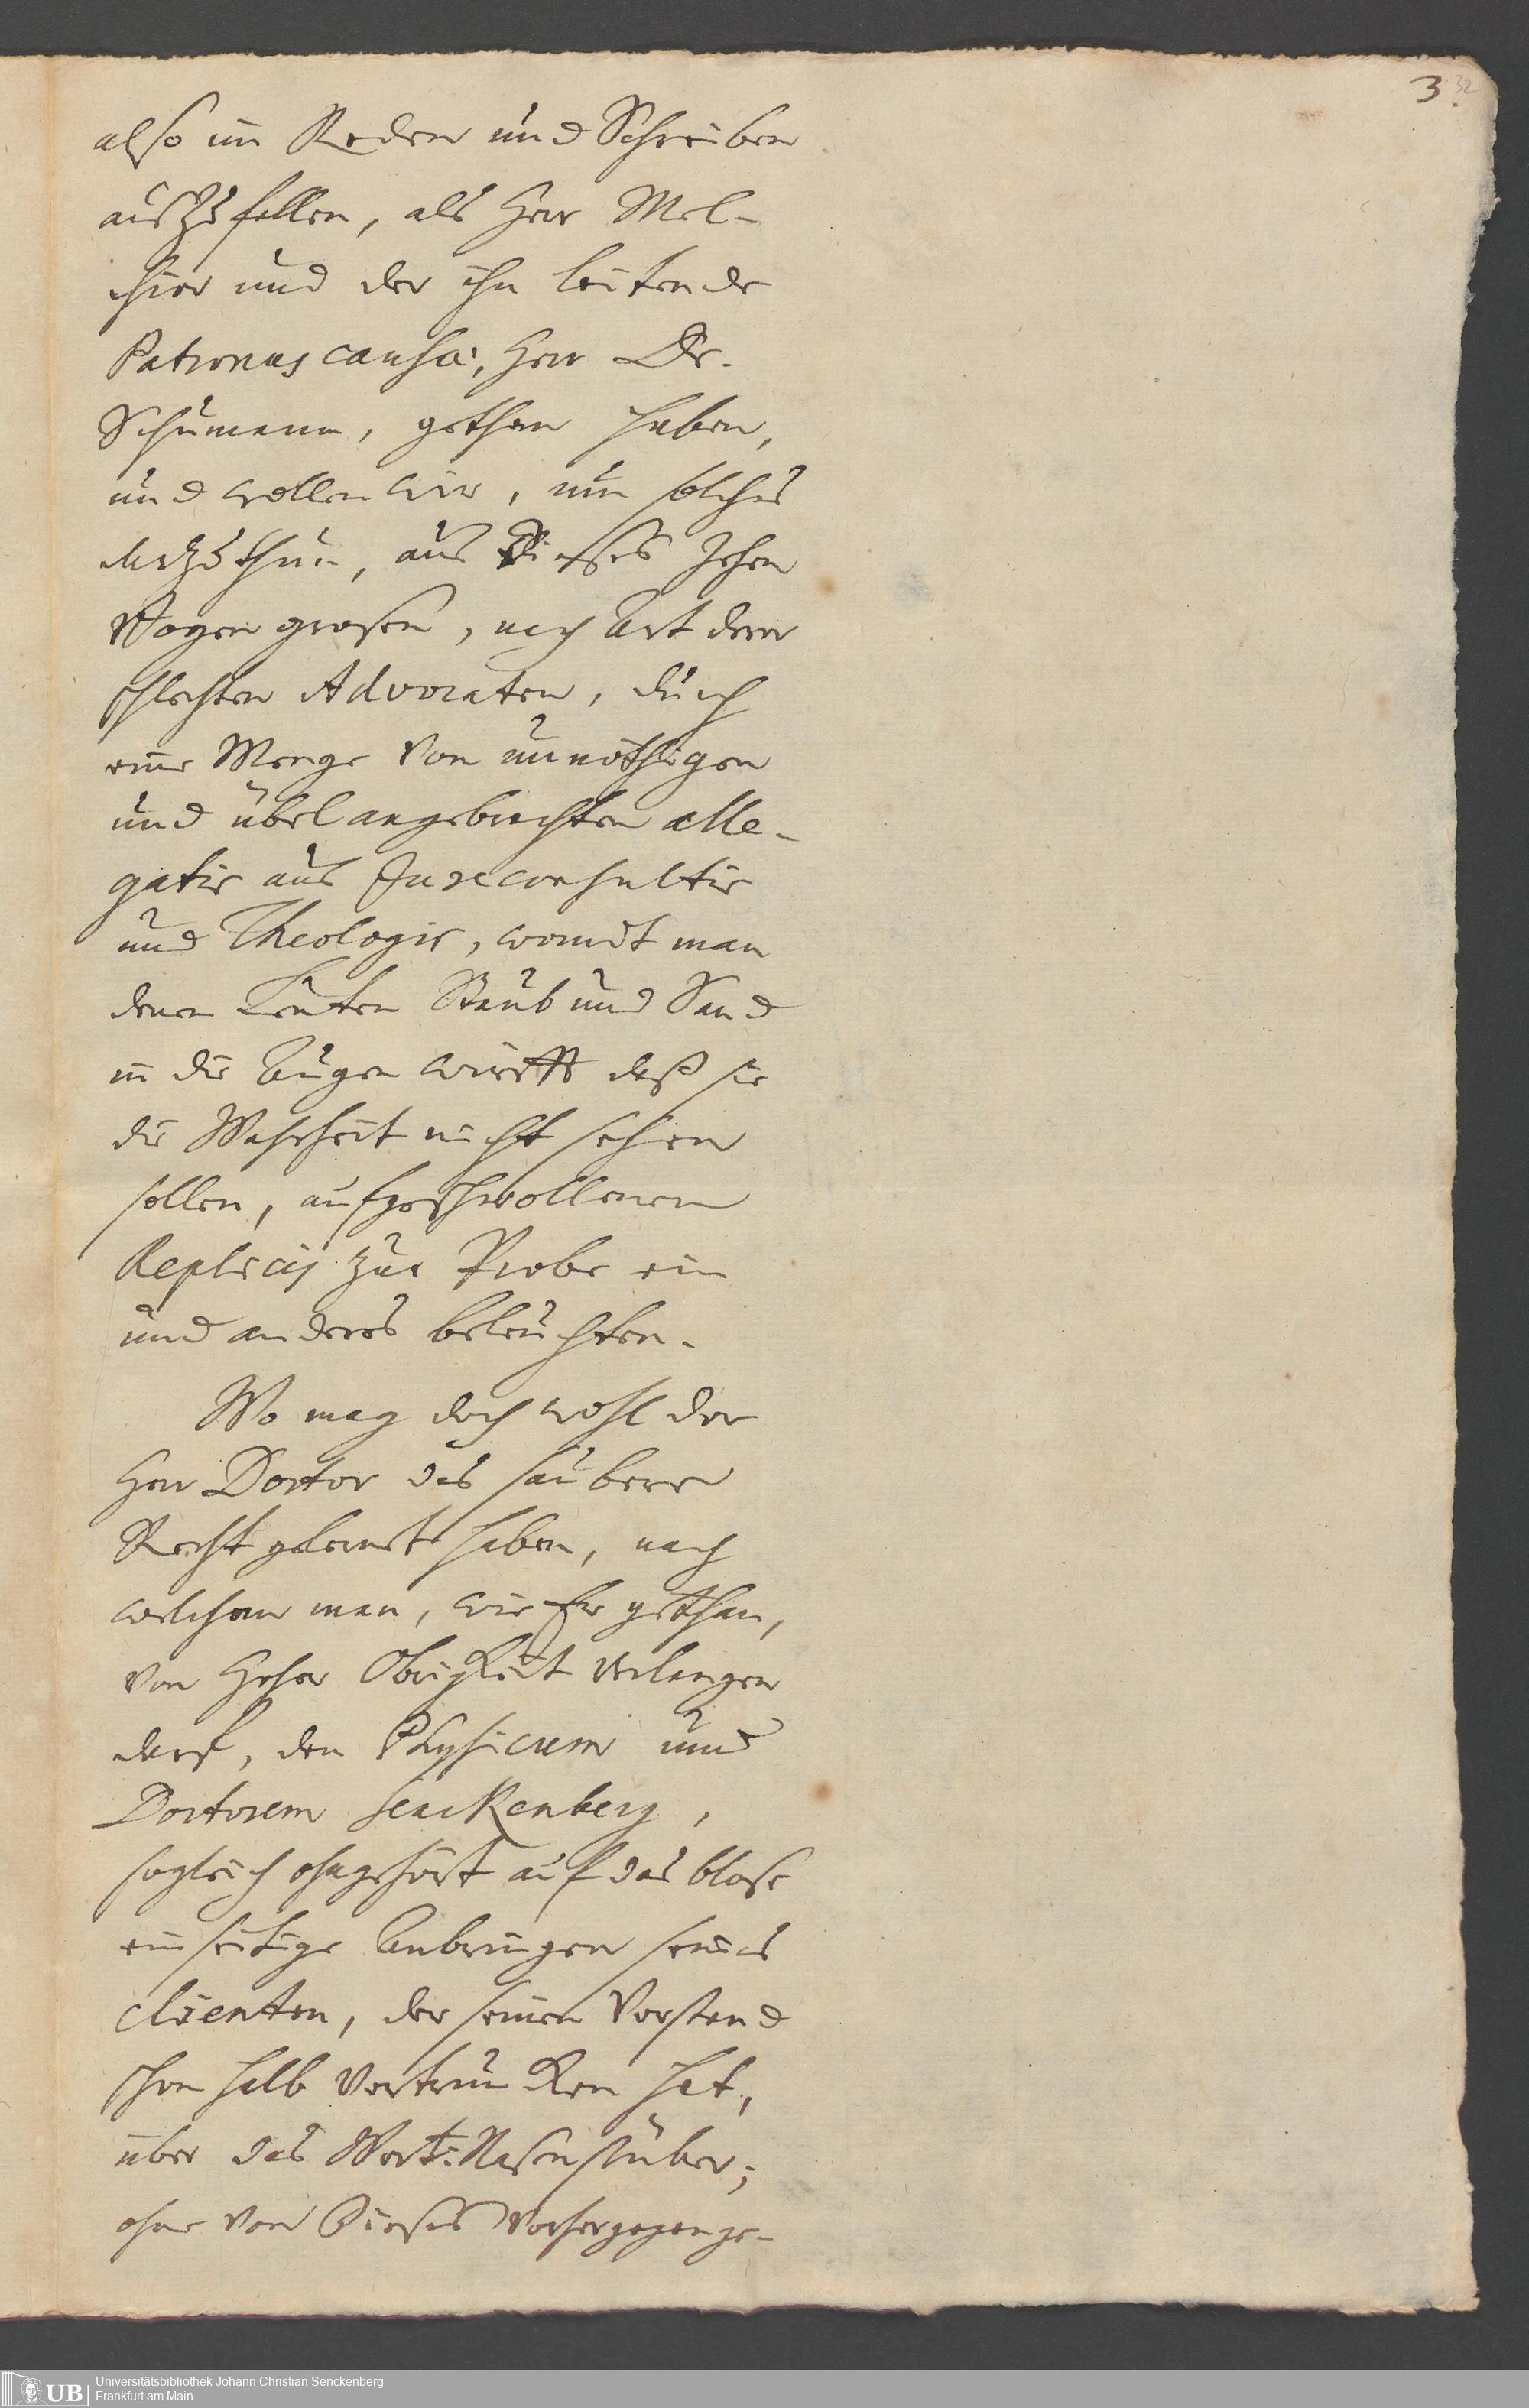 3. 32
also im Reden und Schreiben
auszufallen, als Herr Mel-
chior und der ihn leitende
Patronus causæ, Herr Dr.
Schumann, gethan haben,
und wollen wir, um solches
darzuthun, aus dieses zehen
Bogen grosen, nach Art derer
schlechten Advocaten, durch
eine Menge von unnöthigen
und übel angebrachten alle-
gatis aus Jureconsultis
und Theologis, womit man
denen Leuten Staub und Sand
in die Augen wirfft daß sie
die Wahrheit nicht sehen
sollen, aufgeschwollenen
Replicis zur Probe ein
und anderes beleuchten.
Wo mag doch wohl der
Herr Doctor das saubere
Recht gelernet haben, nach
welchem man, wie Er gethan,
von Hoher Obrigkeit verlangen
darf, den Physicum und
Doctorem Senckenberg,
sogleich ohngehört auf das blose
einseitige Anbringen seines
clienten, der seinen Verstand
schon halb vertruncken hat,
über das Wort: Nasenstüber;
ohne von dieses vorhergegange-
UB
Universitätsbibliothek Johann Christian Senckenberg
Frankfurt am Main